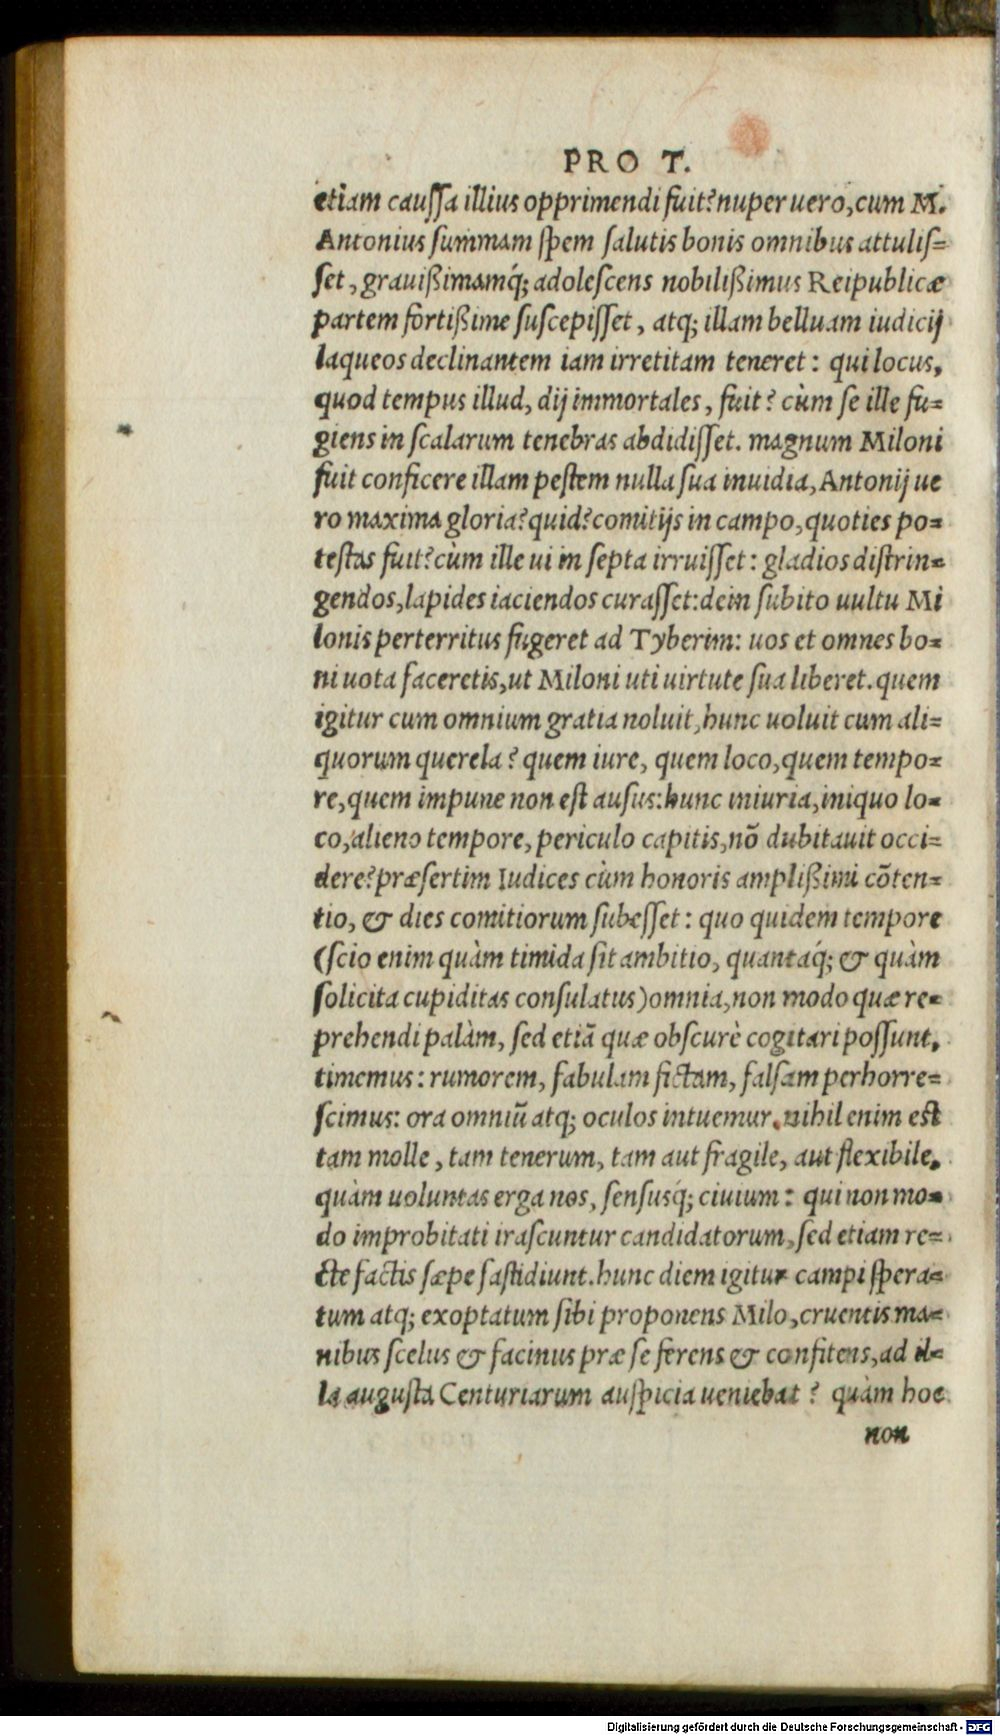 PRO T.
etiam caussa illius opprimendi fuit? nuper uero, cum M.
Antonius summam spem salutis bonis omnibus attulis=
set, grauißimamq́; adolescens nobilißimus Reipublicæ
partem fortißime suscepisset, atq; illam belluam iudicij
laqueos declinantem iam irretitam teneret: qui locus,
quod tempus illud, dij immortales, fuit? cùm se ille fu=
giens in scalarum tenebras abdidisset. magnum Miloni
fuit conficere illam pestem nulla sua inuidia, Antonij ue
ro maxima gloria? quid? comitijs in campo, quoties po=
testas fuit? cùm ille ui in septa irruisset: gladios distrin=
gendos, lapides iaciendos curasset: dein subito uultu Mi
lonis perterritus fugeret ad Tyberim: uos et omnes bo=
ni uota faceretis, ut Miloni uti uirtute sua liberet. quem
igitur cum omnium gratia noluit, hunc uoluit cum ali=
quorum querela? quem iure, quem loco, quem tempo=
re, quem impune non est ausus: hunc iniuria, iniquo lo=
co, alieno tempore, periculo capitis, nō dubitauit occi=
dere? præsertim Iudices cùm honoris amplißimi cōten=
tio, & dies comitiorum subesset: quo quidem tempore
(scio enim quàm timida sit ambitio, quantaq́; & quàm
solicita cupiditas consulatus) omnia, non modo quæ re=
prehendi palàm, sed etiā quæ obscurè cogitari possunt,
timemus: rumorem, fabulam fictam, falsam perhorre=
scimus: ora omniū atq; oculos intuemur. nihil enim est
tam molle, tam tenerum, tam aut fragile, aut flexibile,
quàm uoluntas erga nos, sensusq́; ciuium: qui non mo=
do improbitati irascuntur candidatorum, sed etiam re=
cte factis sæpe fastidiunt. hunc diem igitur campi spera=
tum atq; exoptatum sibi proponens Milo, cruentis ma=
nibus scelus & facinus præ se ferens & confitens, ad il=
la augusta Centuriarum auspicia ueniebat? quàm hoc
non
Digitalisierung gefördert durch die Deutsche Forschungsgemeinschaft - DFG